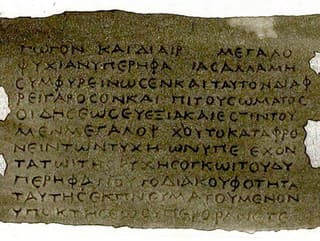 ΓΩΓΟΝ ΚΑΙΔΙΑΙΡ ΜΕΓΑΛΟ
ΨΥΧΙΑΝΥΠΕΡΗΦΑ ΙΑCΑΛΛΑΜΗ
CΥΜΦΥΡΕΙΝΩCΕΝΚΑΙΤΑΥΤΟΝΔΙΑΦ
ΡΕΙΓΑΡΟCΟΝΚΑΙ ΠΙΤΟΥCΩΜΑΤΟC
ΟΙΔΗCΕΩCΕΥΕΞΙΑΚΑΙΕCΤΙΝΤΟΥ
ΜΕΝΜΕΓΑΛΟΨ ΧΟΥΤΟΚΑΤΑΦΡΟ
ΝΕΙΝΤΩΝΤΥΧΗ ΩΝΥΠΕ ΕΧΟΝ
ΤΑΤΩΙΤΗC ΥΧΗCΟΓΚΩΙΤΟΥΔΥ
ΠΕΡΗΦΑ ΟΥ ΤΟΔΙΑΚΟΥΦΟΤΗΤΑ
ΤΑΥΤΗCΕΚΠΝΕΥΜΑΤΟΥΜΕΝΟΝ